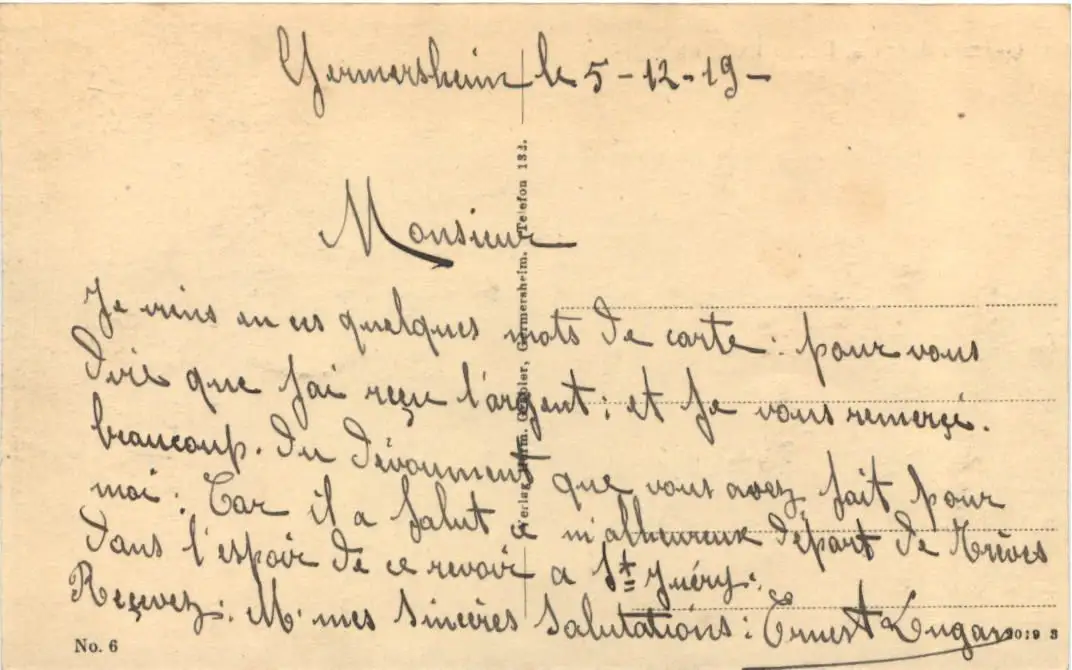 Germersheim le 5-12-19-
Monsieur
Je viens en ces quelques mots de carte: pour vous
dire que jai reçu l'argent: et je vous remerçi.
beaucoup. du dévoument que vous avez fait pour
moi: Car il a falut ce m'alheureux départ de Trèves
dans l'espoir de ce revoir a St Juéry.
Reçevez: M. mes sincères Salutations: Ernest
Verlag Herm. Germersheim. Telefon 132.
No. 6